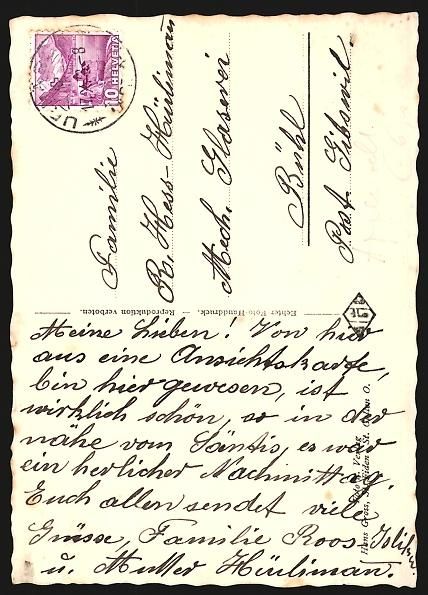 HELVETIA
10
Familie
R. Hess-Hürlimann
Mech. Glaserei
Bühl
Post Gibswil.
Echter Foto-Handdruck. — Reproduktion verboten.
Meine Lieben! Von hier
aus eine Ansichtskarte,
bin hier gewesen, ist
wirklich schön, so in der
nähe vom Säntis, es war
ein herlicher Nachmittag.
Euch allen sendet viele
Grüsse, Familie Roos
u. Mutter Hürliman.
Verlag
Hans Gross, St. Gallen O.